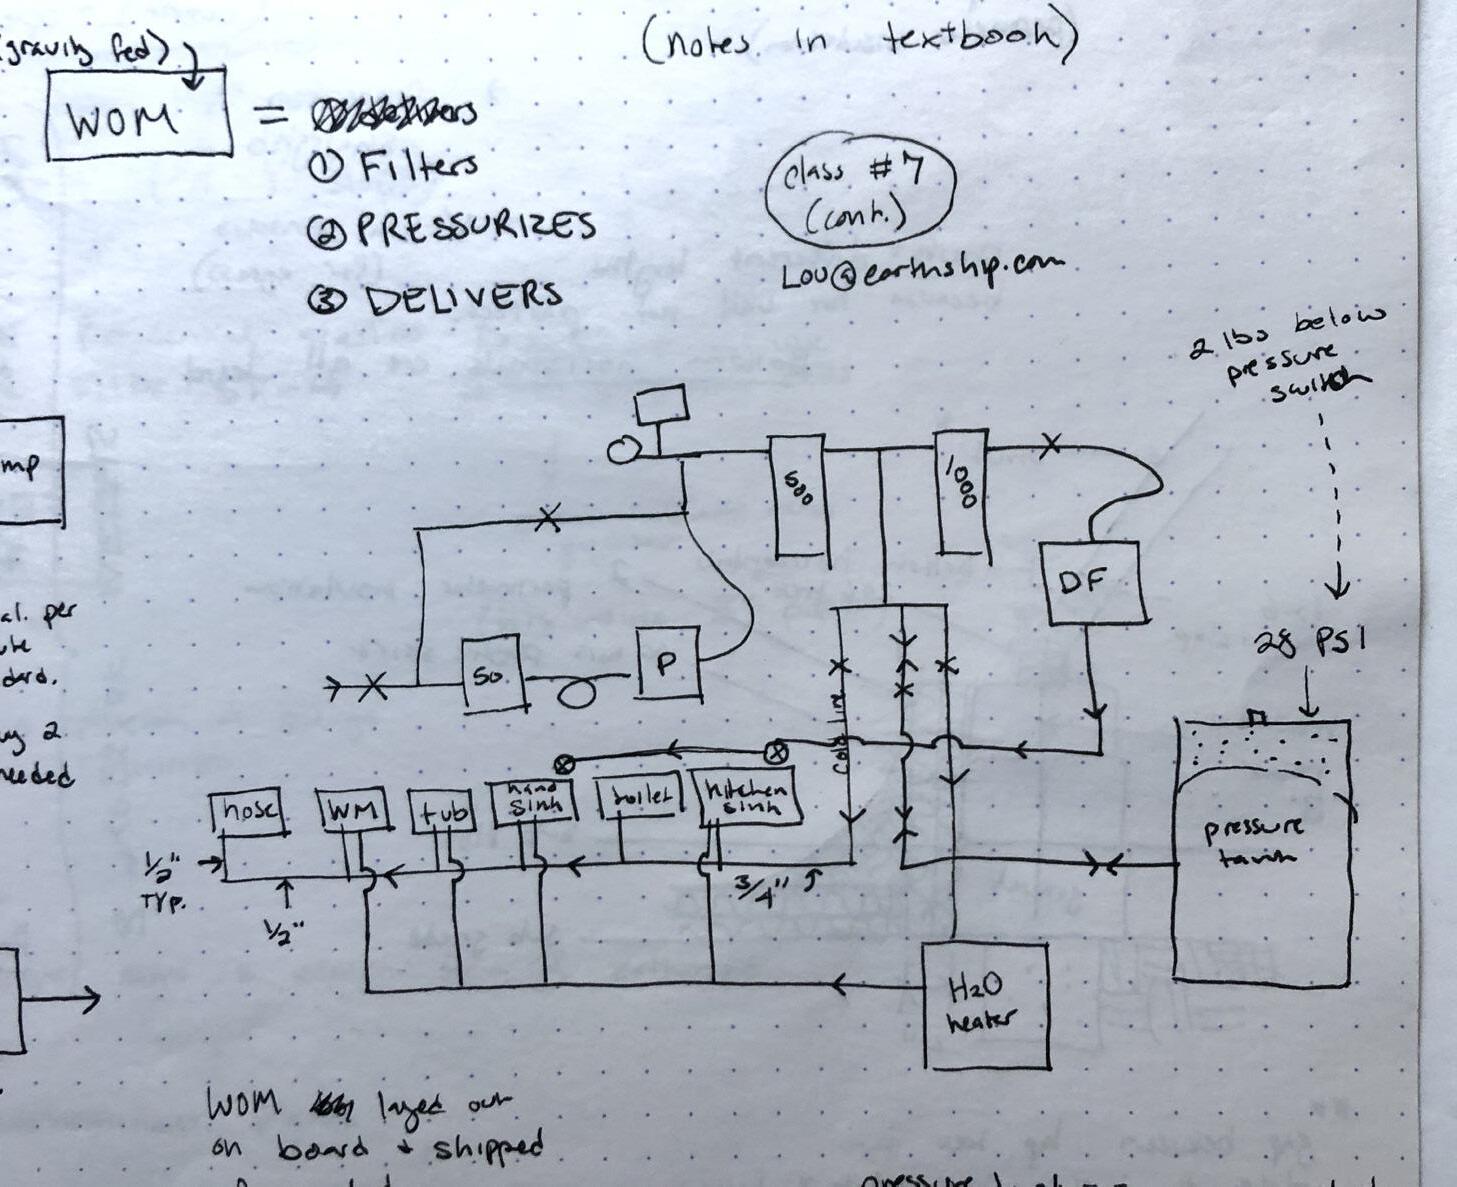 (gravity fed)
(notes in textbook)
WOM =
① Filters
② PRESSURIZES
③ DELIVERS
class #7
(cont.)
LOU@earthship.com
2 lbs below
pressure
switch
mp
500
1000
DF
al. per
dard.
28 PSI
50
P
cold line
2
needed
hose
WM
tub
hand
sink
toilet
kitchen
sink
pressure
tank
1/2"
TYP.
1/2"
3/4"
H2O
heater
WOM layed out
on board + shipped